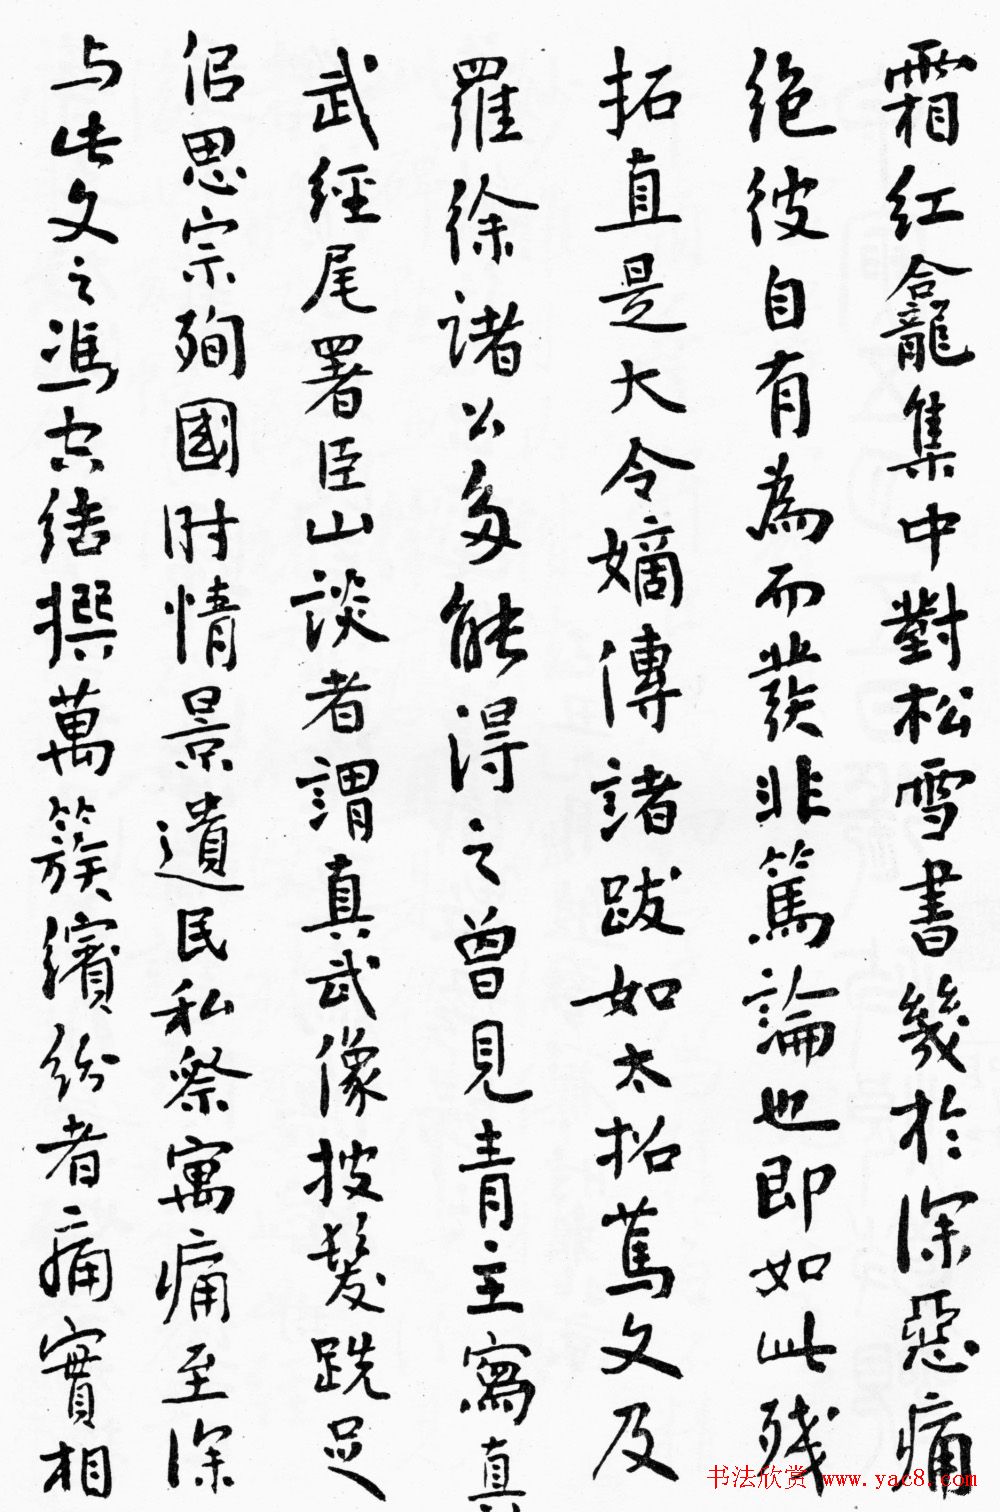 霜红龕集中對松雪書幾於深惡痛
绝彼自有為而發非篤論也即如此残
拓直是大令嫡傳諸跋如太拙篤文及
羅徐諸公多能得之曾見青主寫真
武經尾署臣山談者謂真武像披髮跣足
侣思宗殉國时情景遺民私祭寓痛至深
与此文之馮空结撰萬簇缤纷者痛實相
书法欣赏 www.yac8.com